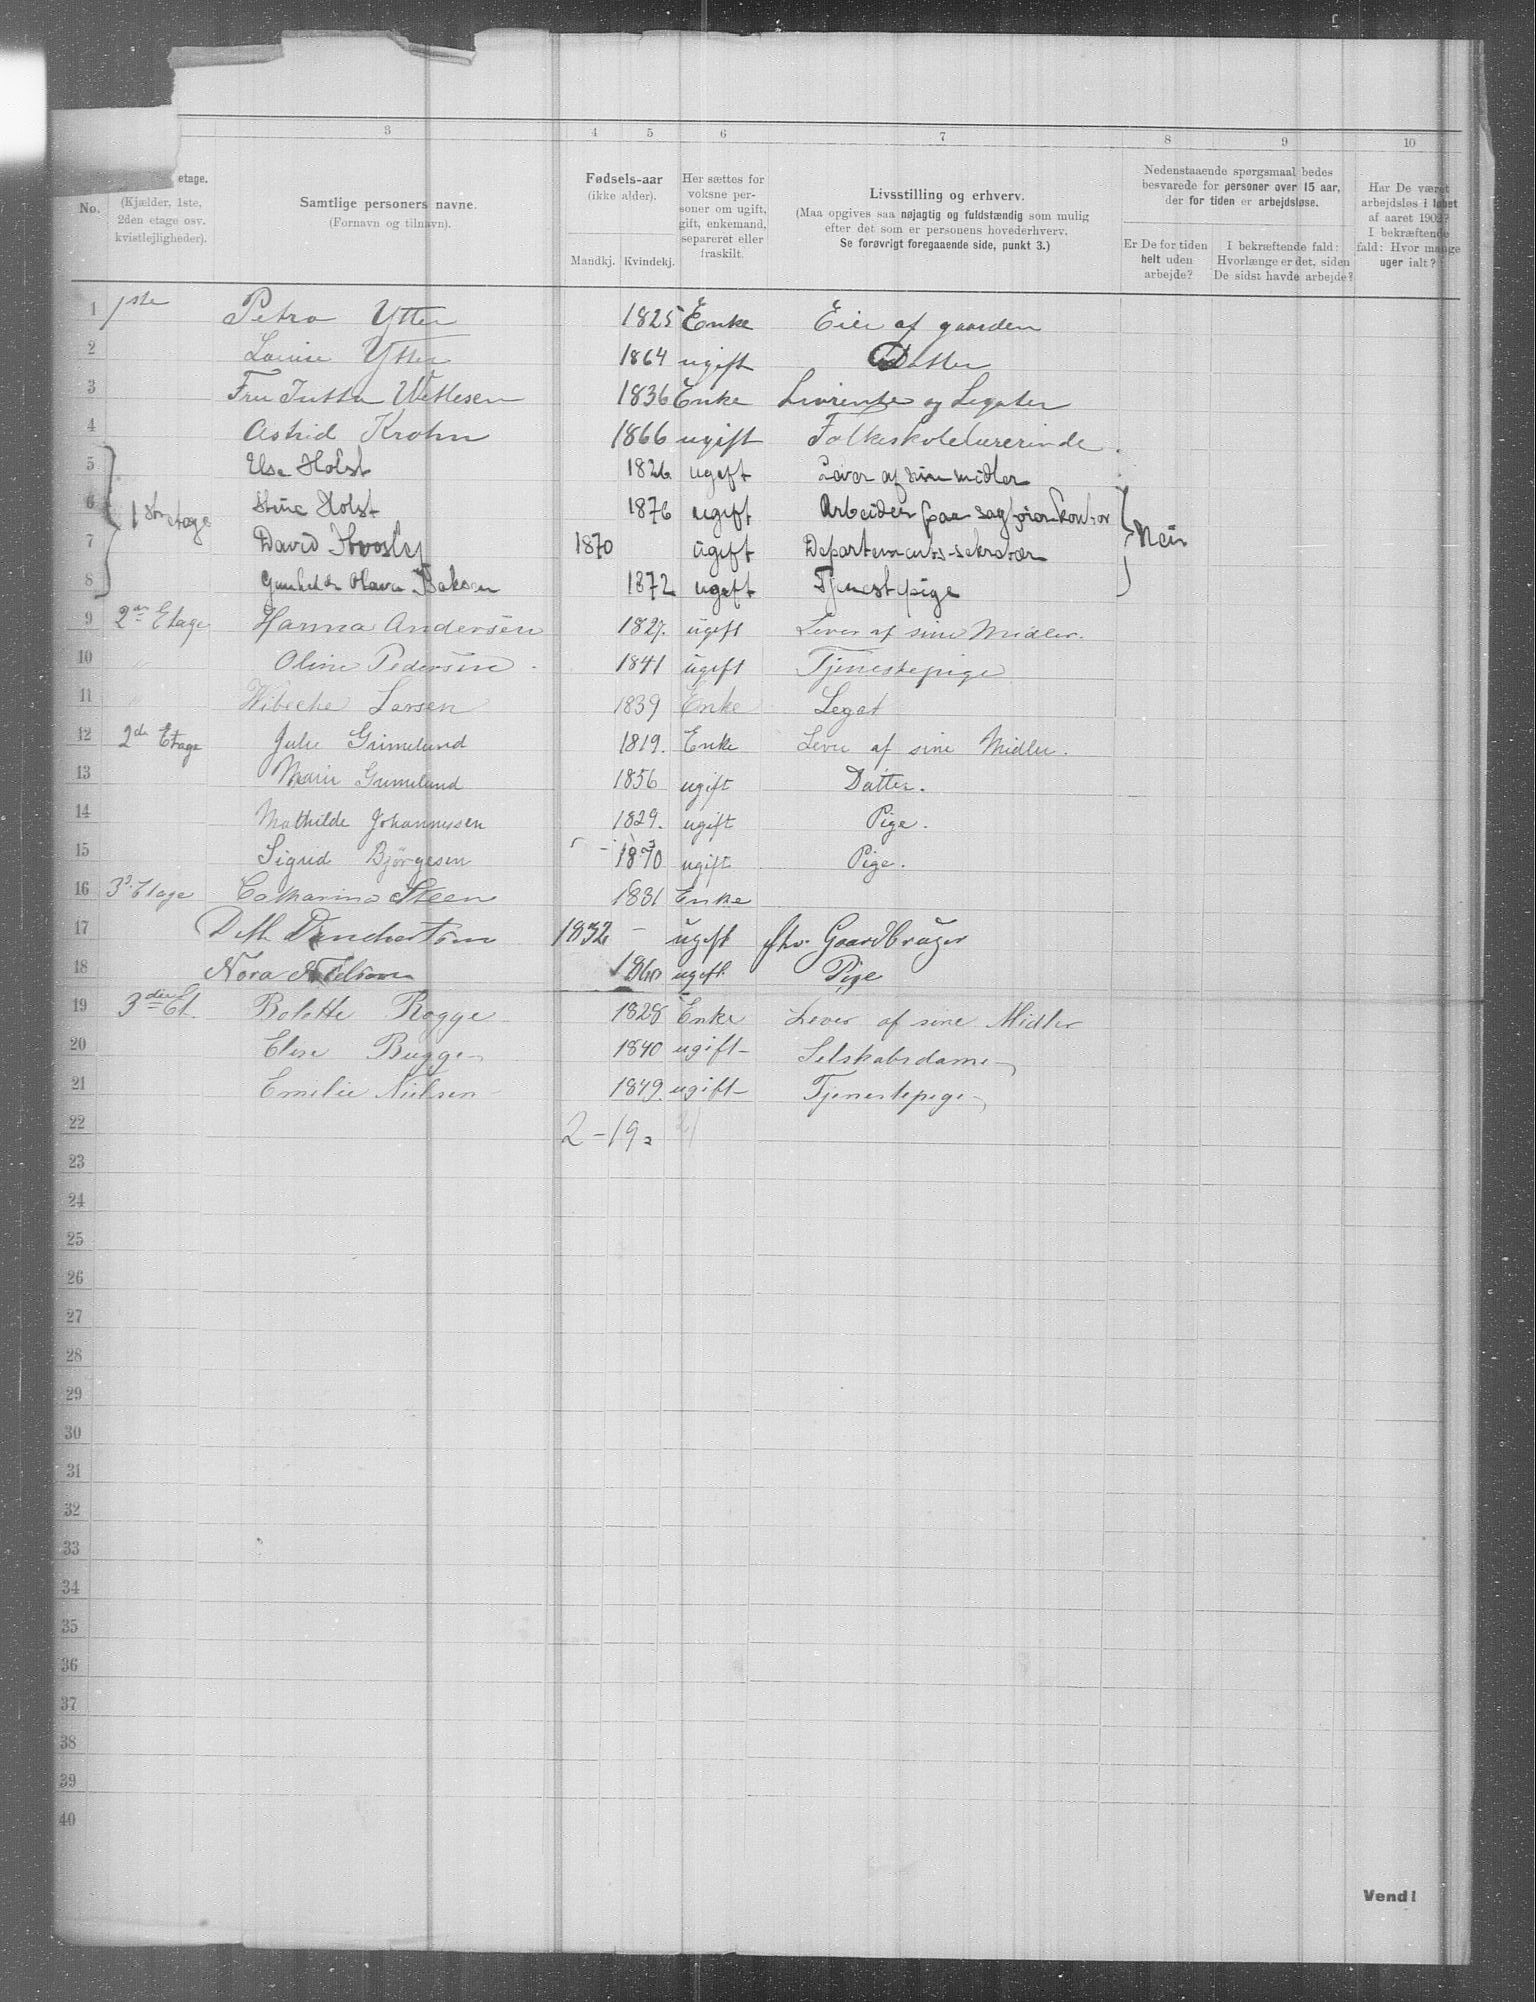 3 4 5 6 7 8 9 10
No.
etage.
(Kjælder, 1ste,
2den etage osv.
kvistlejligheder).
Samtlige personers navne.
(Fornavn og tilnavn).
Fødsels-aar
(ikke alder).
Mandkj. Kvindekj.
Her sættes for
voksne per-
soner om ugift,
gift, enkemand,
separeret eller
fraskilt.
Livsstilling og erhverv.
(Maa opgives saa nøjagtig og fuldstændig som mulig
efter det som er personens hovederhverv.
Se forøvrigt foregaaende side, punkt 3.)
Nedenstaaende spørgsmaal bedes
besvarede for personer over 15 aar,
der for tiden er arbejdsløse.
Er De for tiden
helt uden
arbejde?
I bekræftende fald:
Hvorlænge er det, siden
De sidst havde arbejde?
Har De været
arbejdsløs i løbet
af aaret 1902?
I bekræftende
fald: Hvor mange
uger ialt?
1 1ste Petra Ytter 1825 Enke Eier af gaarden
2 Louise Ytter 1864 ugift Datter
3 Fru Jutta Wetlesen 1836 Enke Livrente og Legater
4 Astrid Krohn 1866 ugift Folkeskolelærerinde.
5 Elsa Holst 1826 ugift Lever af sine midler
6 1ste etage Stine Holst 1876 ugift Arbeider paa sagførerkontor
7 David 1870 ugift Departements-sekretær Nei
8 Gunhilde Olava Baksen 1872 ugift Tjenestpige
9 2en Etage Hanna Andersen 1827. ugift Lever af sine Midler.
10 Oline Pedersen. 1841 ugift Tjenestepige
11 Wibeche Larsen 1839 Enke Legat
12 2de Etage Julie Grimelund 1819. Enke Lever af sine Midler.
13 Marie Grimelund 1856 ugift Datter.
14 Mathilde Johannessen 1829. ugift Pige.
15 Sigrid Bjørgesen 1870 ugift Pige.
16 3d. Etage Catharina Steen 1831 Enke
17 1832 - ugift fhv. Gaardbruger
18 Nora 1860 ugift Pige
19 3die Et. Bolette Rogge 1828 Enke Lever af sine Midler
20 Elise Bugge 1840 ugift Selskabsdame
21 Emilie Nielsen 1849. ugift Tjenestepige
22 2 - 19. 21
23
24
25
26
27
28
29
30
31
32
33
34
35
36
37
38
39
40
Vend!